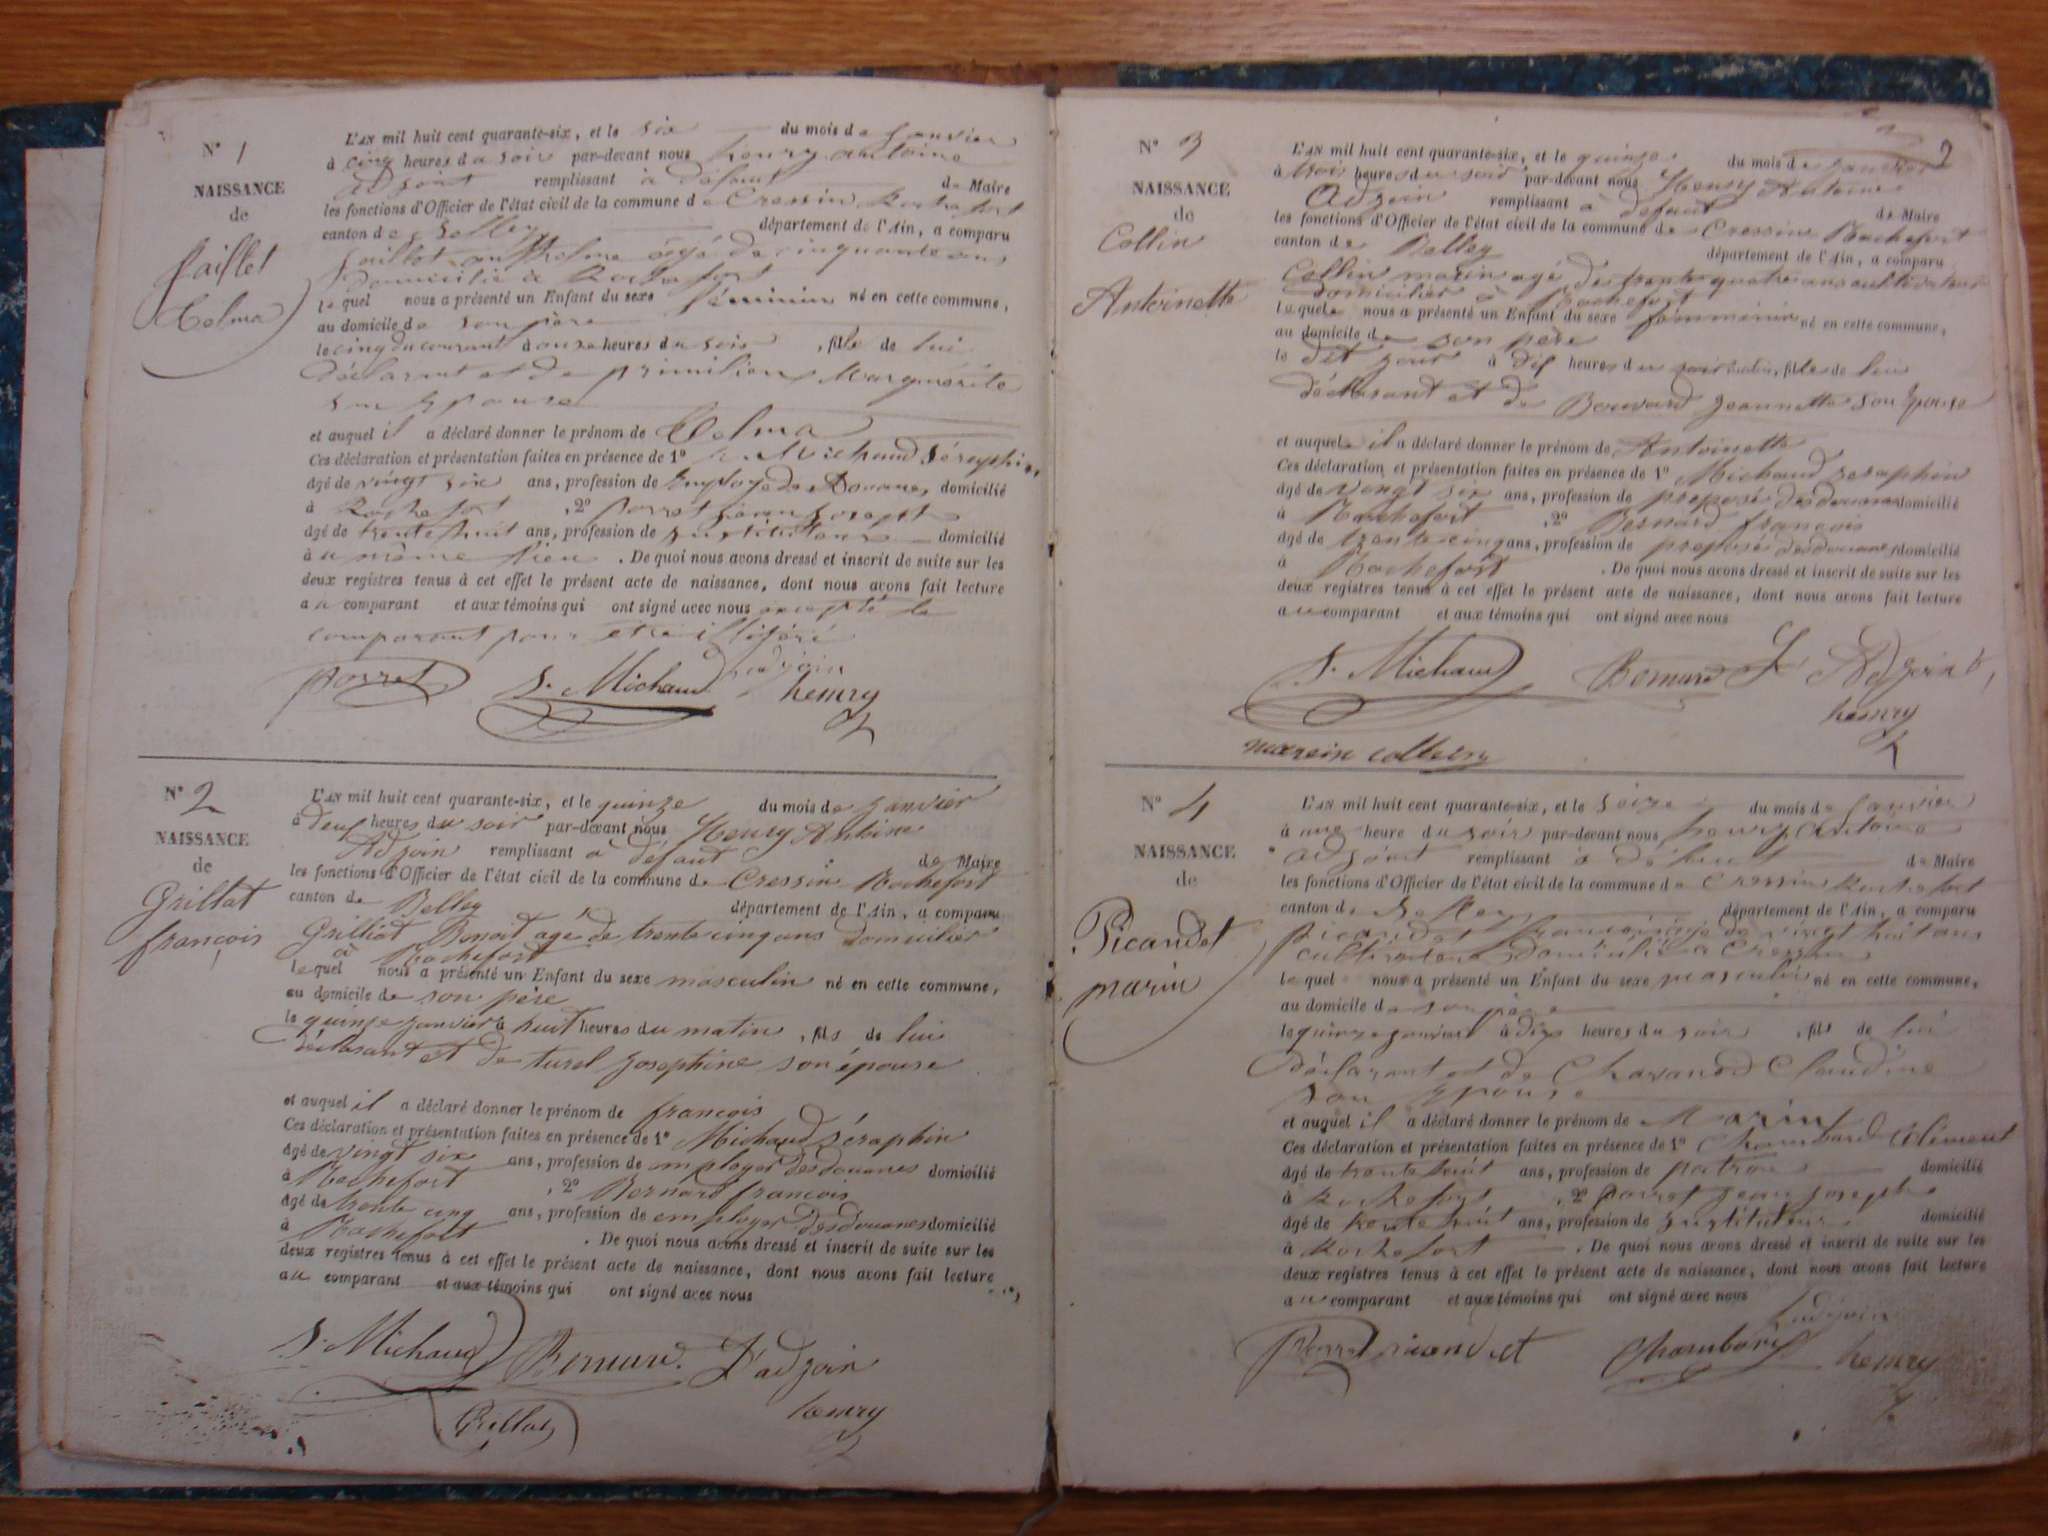 N° 1
NAISSANCE
de
faillet
Celma
L'AN mil huit cent quarante-six, et le six du mois de Janvier
à cinq heures du soir par-devant nous henry antoine
adjoint remplissant à défaut de Maire
les fonctions d'Officier de l'état civil de la commune de Cressin Rochefort
canton de Belley département de l'Ain, a comparu
faillet anthelme âgé de cinquante ans
domicilié à Rochefort
lequel nous a présenté un Enfant du sexe féminin né en cette commune,
au domicile de son père
le cinq du courant à onze heures du soir, fille de lui
déclarant et de Marguerite
son Epouse
et auquel il a déclaré donner le prénom de Celma
Ces déclaration et présentation faites en présence de 1° Michaud Séraphin,
âgé de vingt six ans, profession de Employé de Douanes, domicilié
à Rochefort, 2° porret jean joseph
âgé de trente huit ans, profession de instituteur domicilié
à u même lieu. De quoi nous avons dressé et inscrit de suite sur les
deux registres tenus à cet effet le présent acte de naissance, dont nous avons fait lecture
au comparant et aux témoins qui ont signé avec nous excepté le
comparant pour etre illitéré
porret S. Michaud adjoin
henry
N° 2
NAISSANCE
de
Grillot
françois
L'AN mil huit cent quarante-six, et le quinze du mois de janvier
à deux heures du soir par-devant nous Henry Antoine
Adjoin remplissant à défaut de Maire
les fonctions d'Officier de l'état civil de la commune de Cressin Rochefort
canton de Belley département de l'Ain, a comparu
Grilliot Benoit agé de trente cinq ans domicilier
à Rochefort
lequel nous a présenté un Enfant du sexe masculin né en cette commune,
au domicile de son père
le quinze janvier à huit heures du matin, fils de lui
déclarant et de turel Josephine son épouse
et auquel il a déclaré donner le prénom de françois
Ces déclaration et présentation faites en présence de 1° Michaud Séraphin
âgé de vingt six ans, profession de employer des douanes domicilié
à Rochefort, 2° Bernard françois
âgé de trente cinq ans, profession de employer des douanes domicilié
à Rochefort. De quoi nous avons dressé et inscrit de suite sur les
deux registres tenus à cet effet le présent acte de naissance, dont nous avons fait lecture
au comparant et aux témoins qui ont signé avec nous
S. Michaud Bernard L'adjoin
henry
Grillot
2
N° 3
NAISSANCE
de
Collin
Antoinette
L'AN mil huit cent quarante-six, et le quinze du mois de Janvier
à trois heures du soir par-devant nous Henry Antoine
Adjoin remplissant à défaut de Maire
les fonctions d'Officier de l'état civil de la commune de Cressin Rochefort
canton de Belley département de l'Ain, a comparu
Collin marin agé de trente quatre ans cultivateur
domicilier à Rochefort
lequel nous a présenté un Enfant du sexe femminin né en cette commune,
au domicile de son père
le dit jour à dix heures du matin, fille de lui
déclarant et de Bouvard Jeannette son Epouse
et auquel il a déclaré donner le prénom de Antoinette
Ces déclaration et présentation faites en présence de 1° Michaud seraphin
âgé de vingt six ans, profession de preposé des douanes domicilié
à Rochefort, 2° Bernard françois
âgé de trente cinq ans, profession de preposé des douanes domicilié
à Rochefort. De quoi nous avons dressé et inscrit de suite sur les
deux registres tenus à cet effet le présent acte de naissance, dont nous avons fait lecture
au comparant et aux témoins qui ont signé avec nous
S. Michaud Bernard f L'Adjoint
henry
marein collin
N° 4
NAISSANCE
de
Picandet
marin
L'AN mil huit cent quarante-six, et le seize du mois de Janvier
à une heure du soir par-devant nous henry Antoine
adjoint remplissant à défaut de Maire
les fonctions d'Officier de l'état civil de la commune de Cressin Rochefort
canton de Belley département de l'Ain, a comparu
picandet françois âgé de vingt huit ans
cultivateur domicilié à Cressin
lequel nous a présenté un Enfant du sexe masculin né en cette commune,
au domicile de son père
le quinze janvier à dix heures du soir, fils de lui
déclarant et de Chavanod Claudine
son Epouse
et auquel il a déclaré donner le prénom de Marin
Ces déclaration et présentation faites en présence de 1° Chambard Clément
âgé de trente huit ans, profession de patron domicilié
à Rochefort, 2° porret jean joseph
âgé de trente huit ans, profession de instituteur domicilié
à Rochefort. De quoi nous avons dressé et inscrit de suite sur les
deux registres tenus à cet effet le présent acte de naissance, dont nous avons fait lecture
au comparant et aux témoins qui ont signé avec nous
Ladjoin
Porret picandet Chambard henry